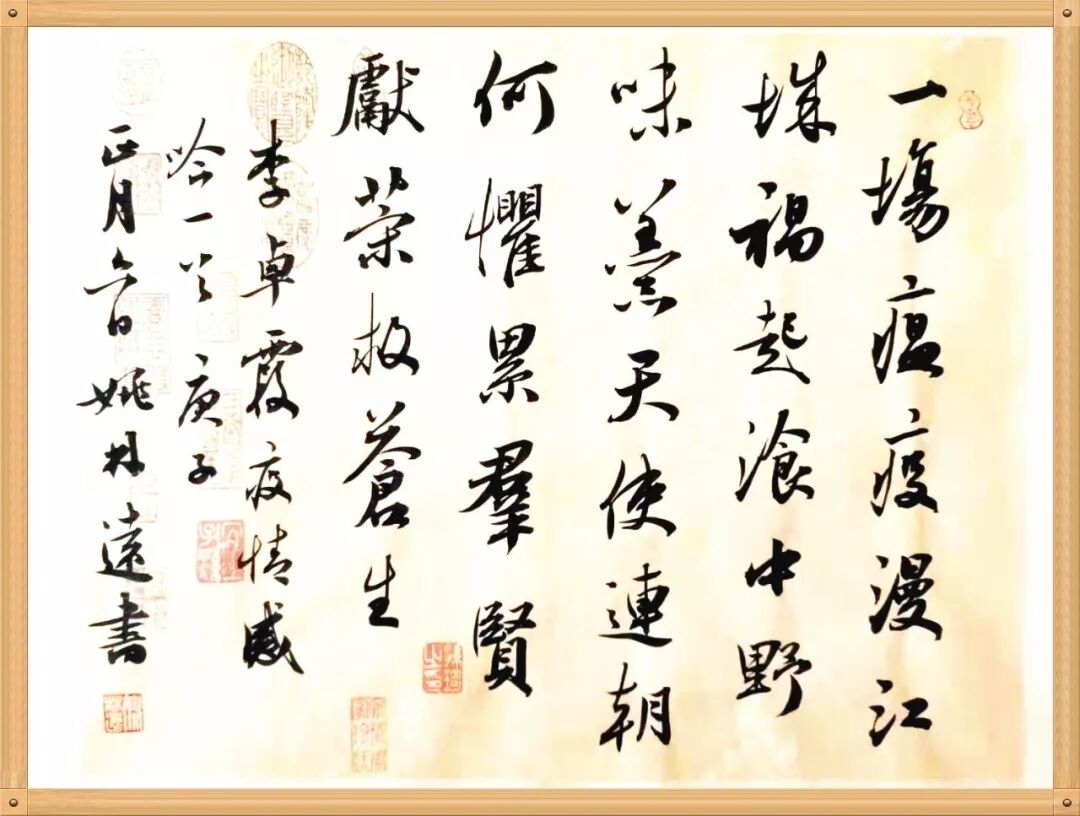 一場瘟疫漫江
城禍起湌中野
味羹天使連朝
何懼累羣賢
獻策救蒼生
李卓霞疫情感
吟一首 庚子
正月六日 姚林遠書